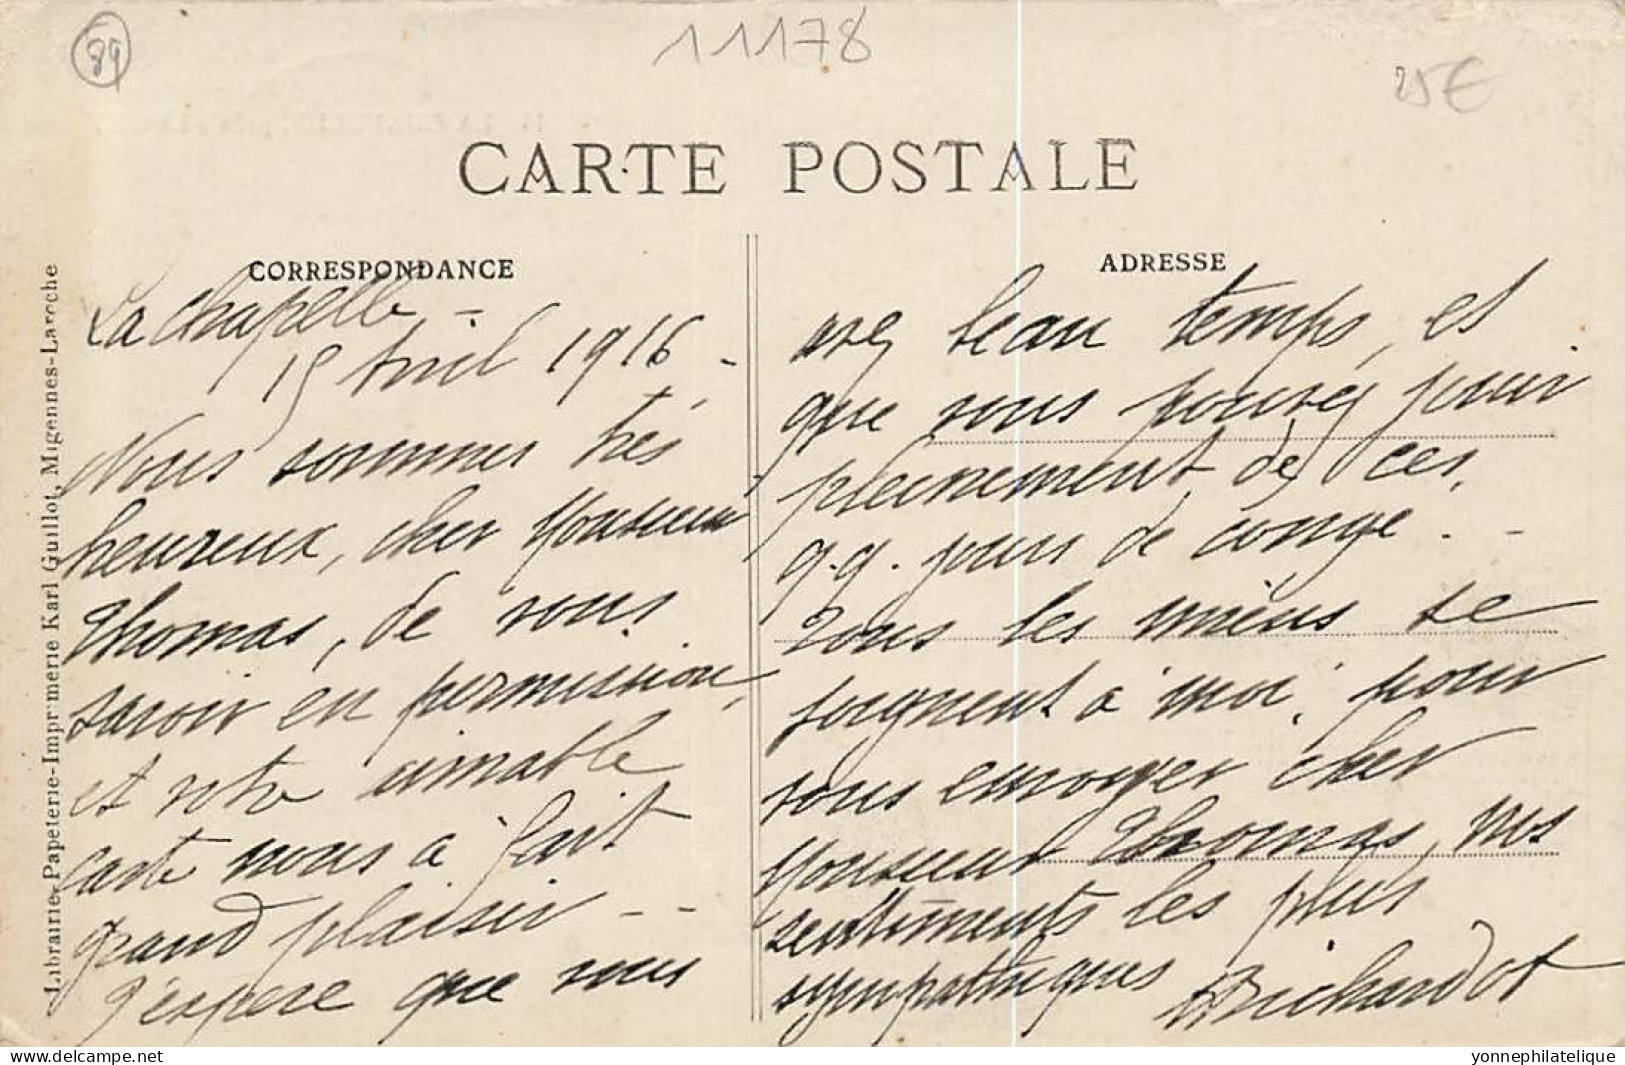 89
11178
25€
CARTE POSTALE
CORRESPONDANCE
La Chapelle -
15 Avril 1916 -
Nous sommes très
heureux, cher Monsieur
Thomas, de vous
savoir en permission,
et votre aimable
carte nous a fait
grand plaisir - -
J'espère que vous
ADRESSE
avez beau temps, et
que vous pouvez jouir
pleinement de ces
q.q. jours de congé. -
Tous les miens se
joignent à moi, pour
vous envoyer cher
Monsieur Thomas, nos
sentiments les plus
sympathiques
Richardot
Librairie-Papeterie-Imprimerie Karl Guillot, Migennes-Laroche
www.delcampe.net
yonnephilatelique